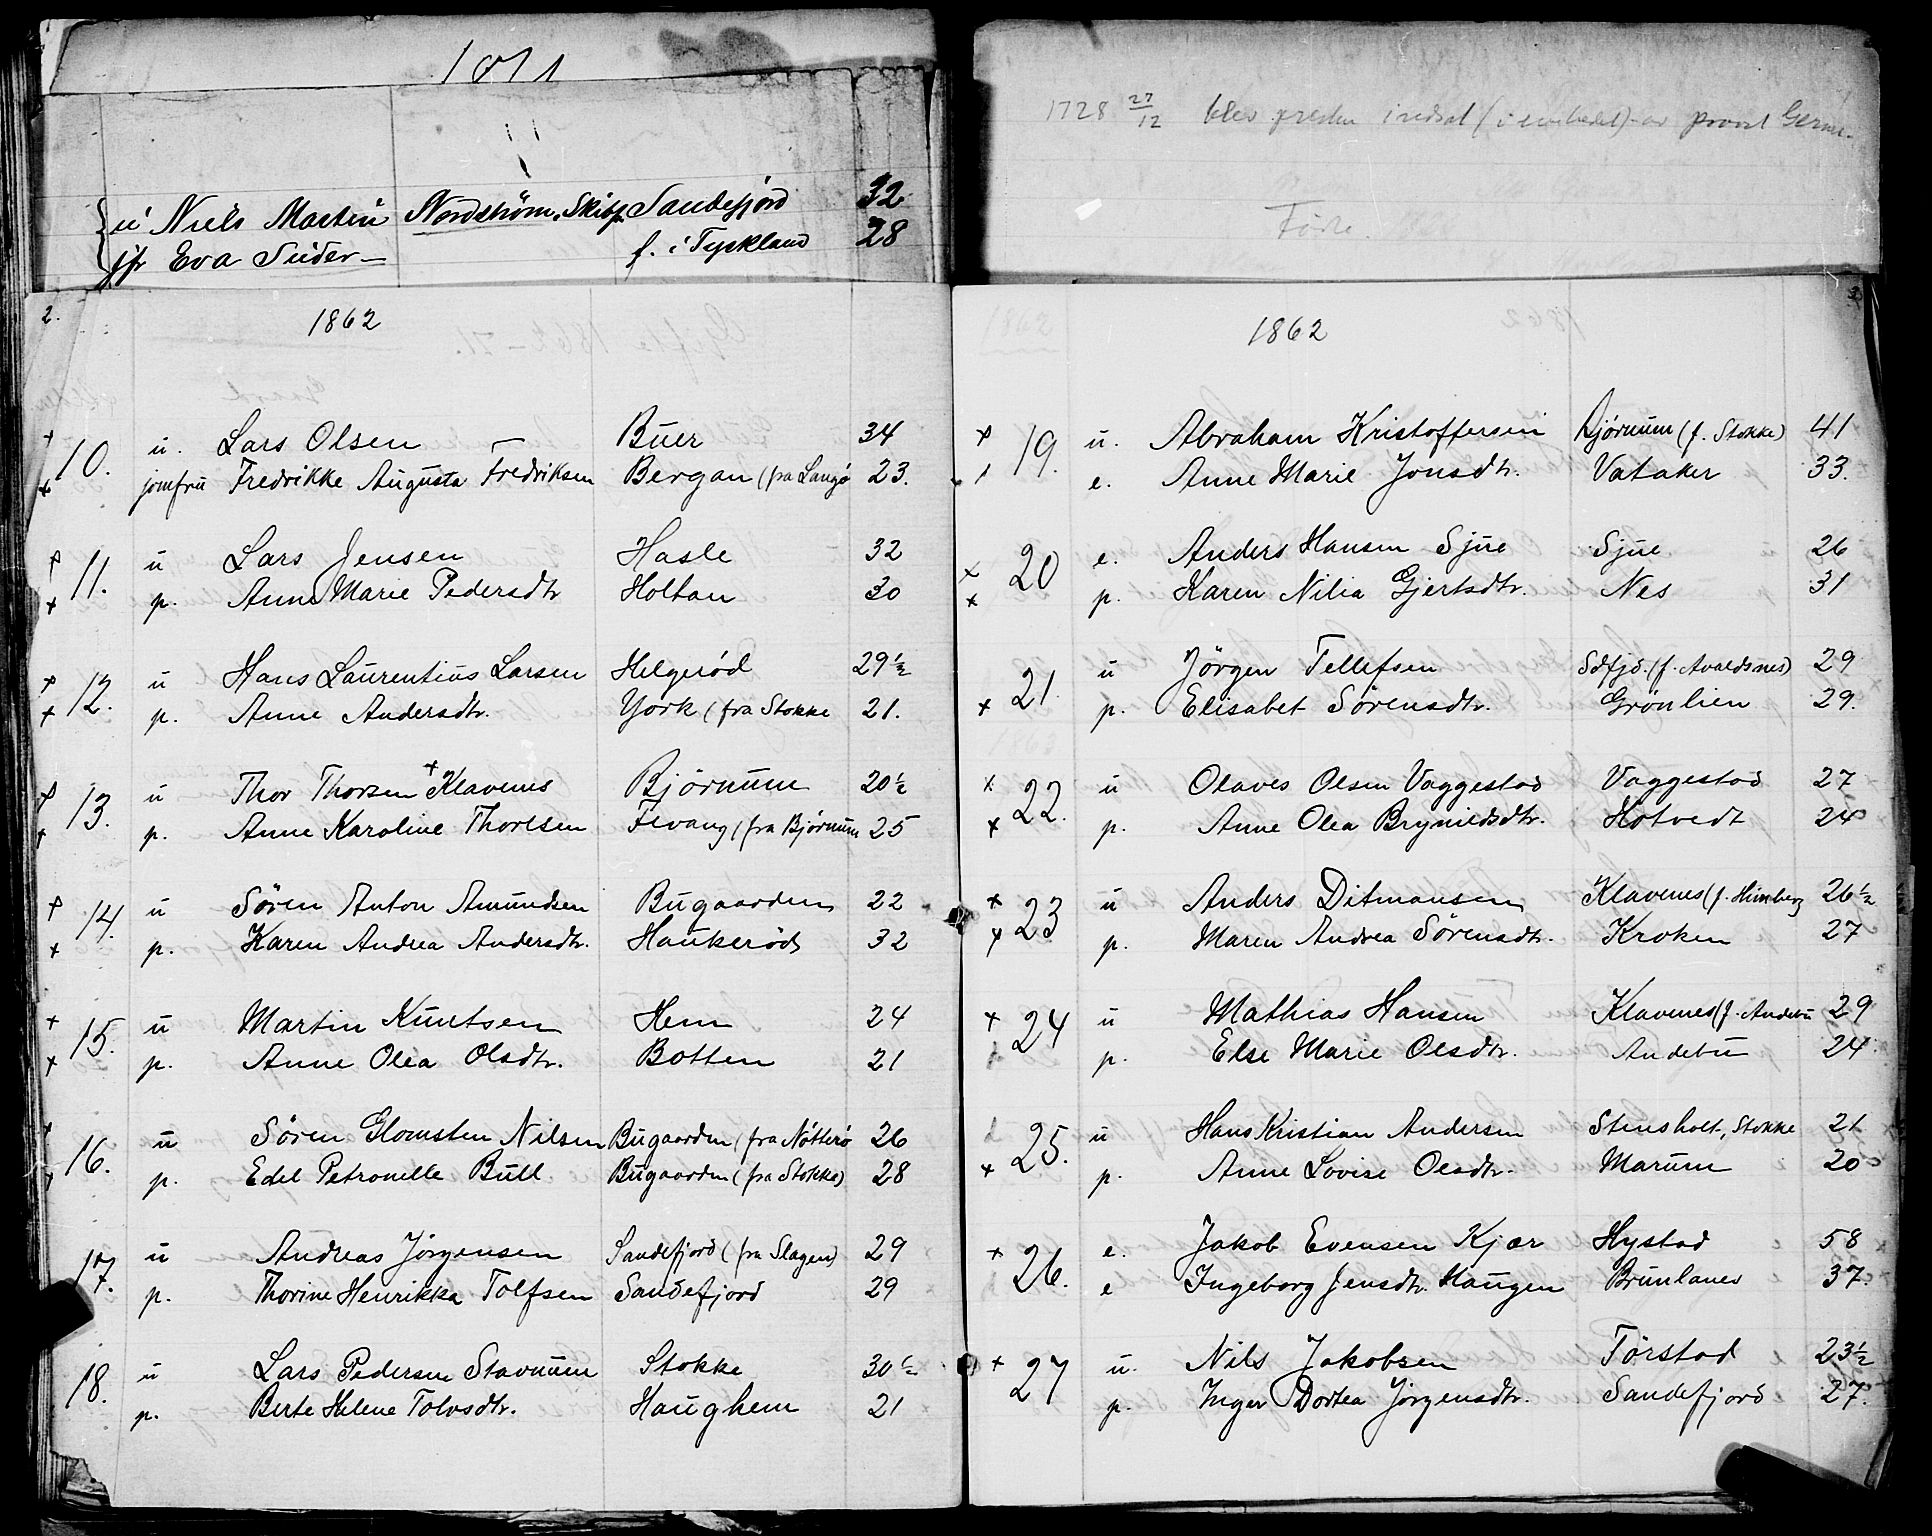 1871
u Niels Martin Nordstrøm, Skibsf. Sandefjord 32
jfr Eva Suder f. i Tyskland 28
1728 27/12 blev presten indsat (i embedet) av provst
Føste.
2.
1862
10. u. Lars Olsen Buer 34
jomfru Fredrikke Augusta Fredriksen Bergan (fra Langø 23.
11. u Lars Jensen Hasle 32
p. Anne Marie Pedersdtr Holtan 30
12. u Hans Laurentius Larsen Helgerød 29½
p. Anne Andersdtr. York (fra Stokke 21.
13. u Thor Thorsen Klavenes Bjørnum 20½
p. Anne Karoline Thorlsen Fevang (fra Bjørnum 25
14. u Søren Anton Amundsen Bugaarden 22
p. Karen Andrea Andersdtr. Haukerød 32
15. u Martin Knutsen Hem 24
p. Anne Olea Olsdtr. Botten 21
16. u Søren Glomsten Nilsen Bugaarden (fra Nøtterø 26
p. Edel Petronelle Bull Bugaarden (fra Stokke) 28
17. u Andreas Jörgensen Sandefjord (fra Slagen) 29
p. Thorine Henrikka Tolfsen Sandefjord 29
18. u Lars Pedersen Stavnum Stokke 30½
p. Berte Helene Tolvsdtr. Haughem 21
3
1862
19. u. Abraham Kristoffersen Bjørnum (f. Stokke) 41
e. Anne Marie Jonsdtr. Vataker 33.
20 e. Anders Hansen Sjue Sjue 26
p. Karen Nilia Gjertsdtr. Nes 31
21 u Jörgen Tellefsen Sdfjd. (f. Avaldsnes) 29
p. Elisabet Sörensdtr. Grønlien 29.
22. u Olaves Olsen Vaggestad Vaggestad 27
p. Anne Olea Brynildsdtr. Hotvedt 24
23 u Anders Ditmansen Klavenes (f. Himberg 26½
p. Maren Andrea Sörensdtr. Kroken 27
24 u Mathias Hansen Klavenes (f. Andebu 29
p. Else Marie Olsdtr. Andebu 24
25. u Hans Kristian Andersen Stensholt, Stokke 21
p. Anne Lovise Olsdtr. Marum 20
26. e. Jakob Evensen Kjær Hystad 58
e Ingeborg Jensdtr. Haugen Brunlanes 37.
27 u. Nils Jakobsen Törstad 23½
p. Inger Dortea Jörgensdtr. Sandefjord 27.